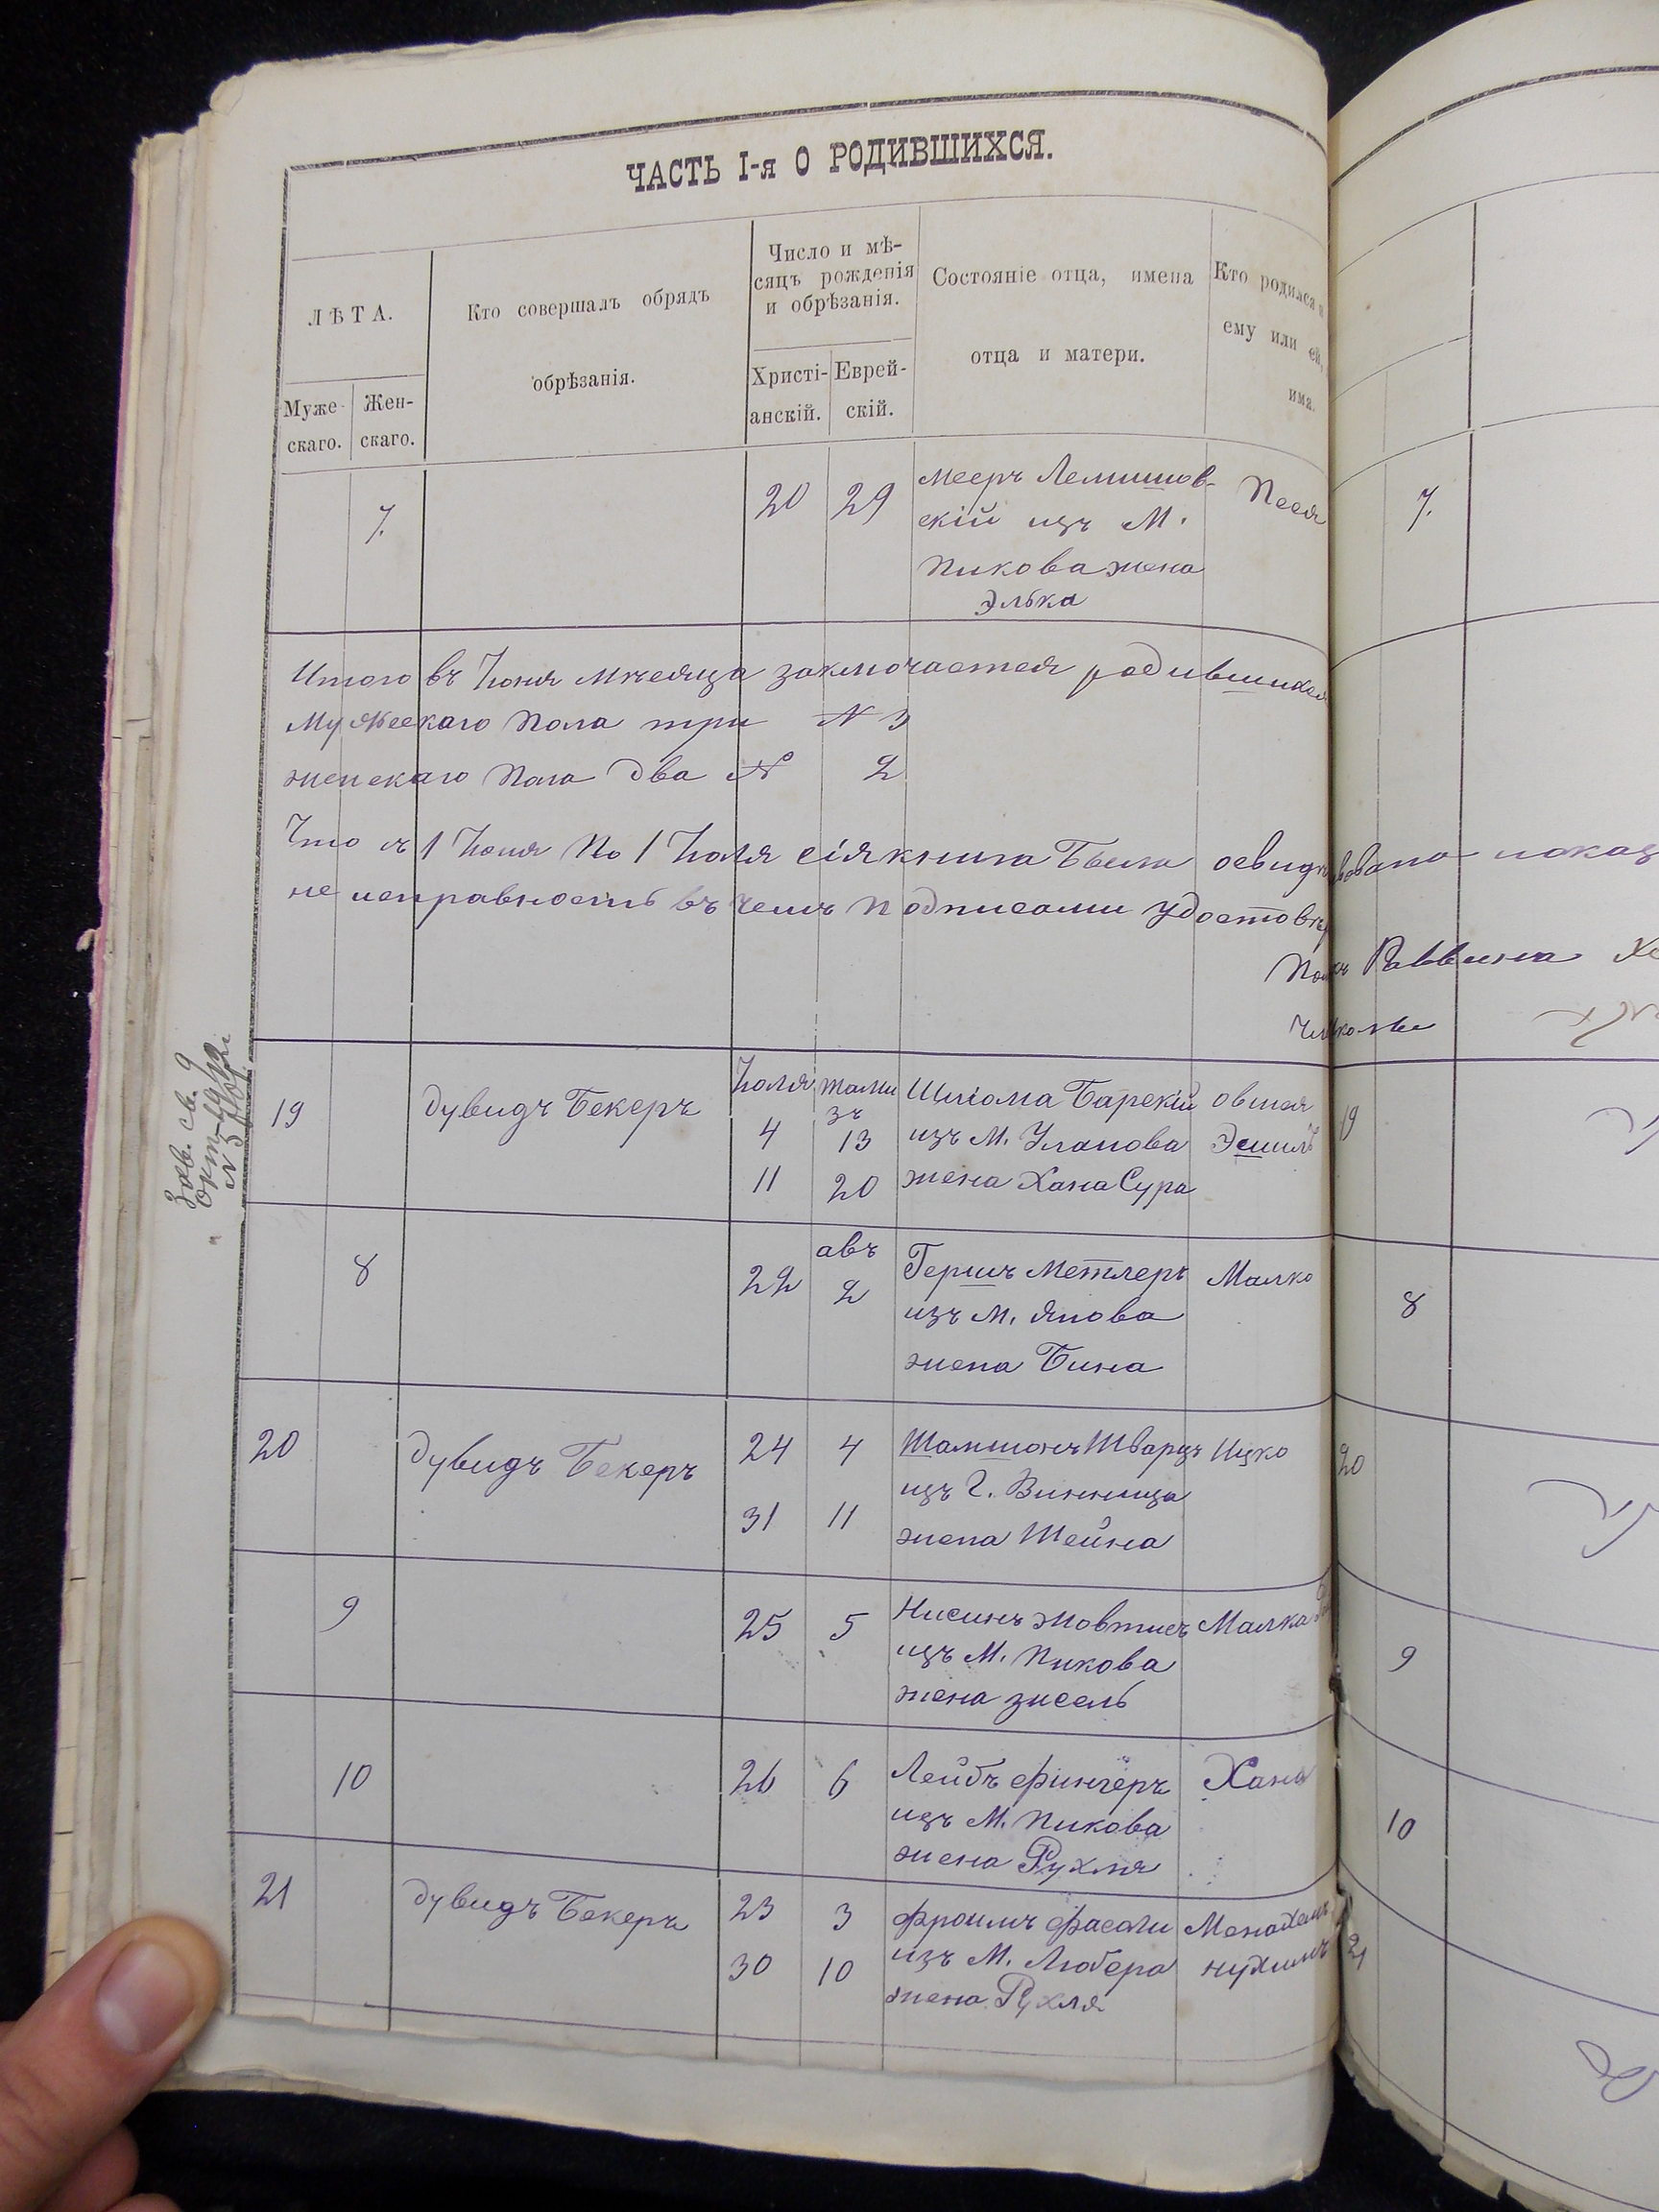 ЧАСТЬ I-я О РОДИВШИХСЯ.
ЛѢТА.
Муже-
скаго.
Жен-
скаго.
Кто совершалъ обрядъ
обрѣзанія.
Число и мѣ-
сяцъ рожденія
и обрѣзанія.
Христі-
анскій.
Еврей-
скій.
Состояніе отца, имена
отца и матери.
Кто родился и
ему или ей
има.
7. 20 29 Мееръ Лемишов- Песя 7.
скій изъ М.
Пикова жена
Элька
Итого въ Іюня мѣсяца заключается родившихся
Мужескаго Пола три № 3
женскаго Пола два № 2
Что съ 1 Іюня По 1 Іюля сія книга была освидѣ
не исправность въ чемъ подписами удостовѣр
Раввина
Зав. св. 9
№ 3
19 дувидъ Бекеръ Іюля тами Шліома Барскій овшея 19
зъ
4 13 изъ М. Уланова Эшиль
11 20 жена Хана Сура
авъ
8 22 2 Гершъ Метлеръ Малко 8
изъ М. Янова
жена Бина
20 дувидъ Бекеръ 24 4 Шамшонъ Шварцъ Ицко 20
изъ г. Винница
31 11 жена Шейна
9 25 5 Нисинъ Жовтисъ Малка 9
изъ М. Пикова
жена зисель
10 26 6 Лейбъ Фингеръ Хана 10
изъ М. Пикова
жена Рухля
21 дувидъ Бекеръ 23 3 Фроимъ Фасоли Менахемъ 21
30 10 изъ М. Любера нухимъ
жена Рухля